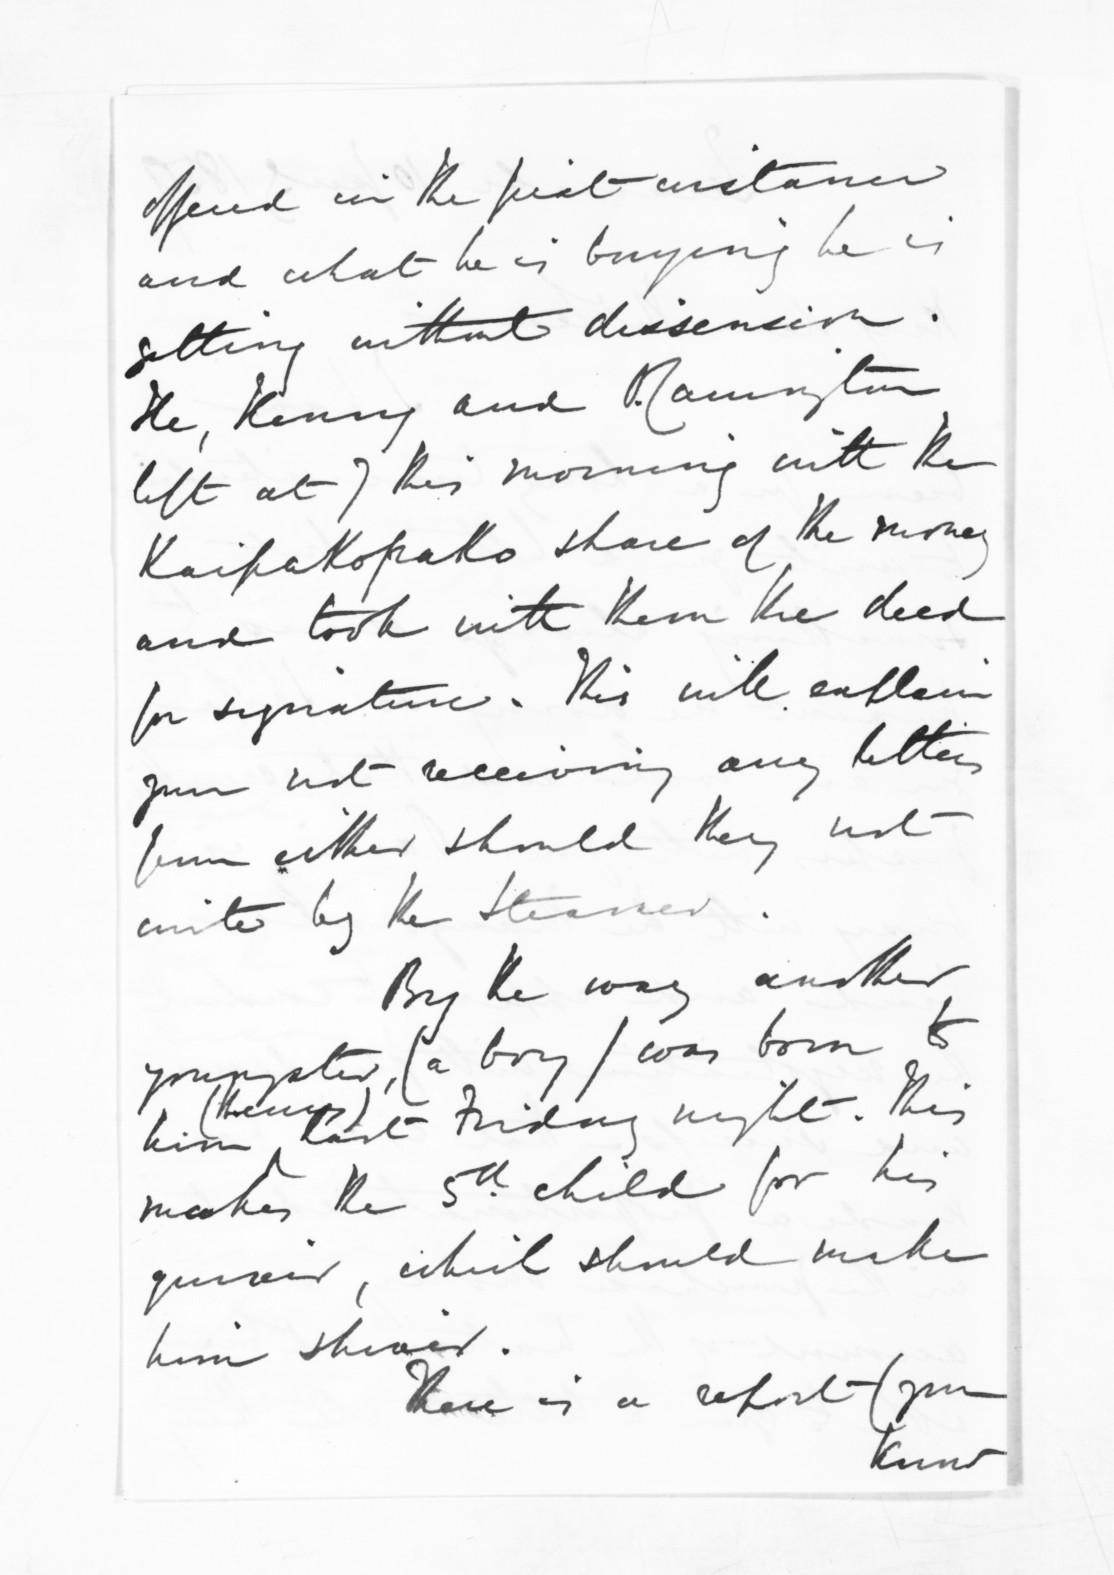 offered in the first instance
and what he is buying he is
getting without dissension.
He, Henry and P. Ramington
left at 7 this morning with the
Kaipakopako share of the money
and took with them the deed
for signature. This will explain
your not receiving any letters
from either should they not
write by the Steamer.
By the way another
youngster, (a boy) was born to
(Henry)
him last Friday night. This
makes the 5th. child for his
quiver, which should make
him shiver.
There is a report (you
know